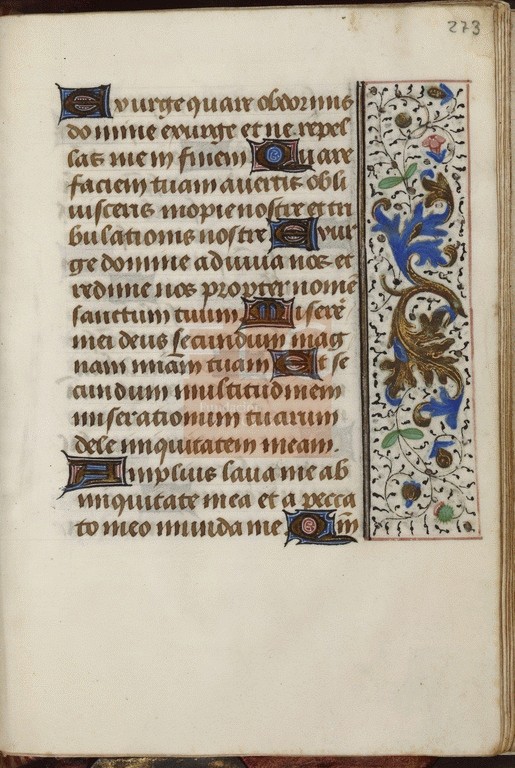 273
Exurge quare obdormis
domine exurge et ne repel
las me in finem Quare
faciem tuam avertis obli
visceris inopie nostre et tri
bulationis nostre Exur
ge domine adiuva nos et
redime nos propter nome
sanctum tuum Misere
mei deus secundum mag
nam miam tuam Et se
cundum multitudinem
miserationum tuarum
dele iniquitatem meam.
Amplius lava me ab
iniquitate mea et a pecca
to meo munda me Qm